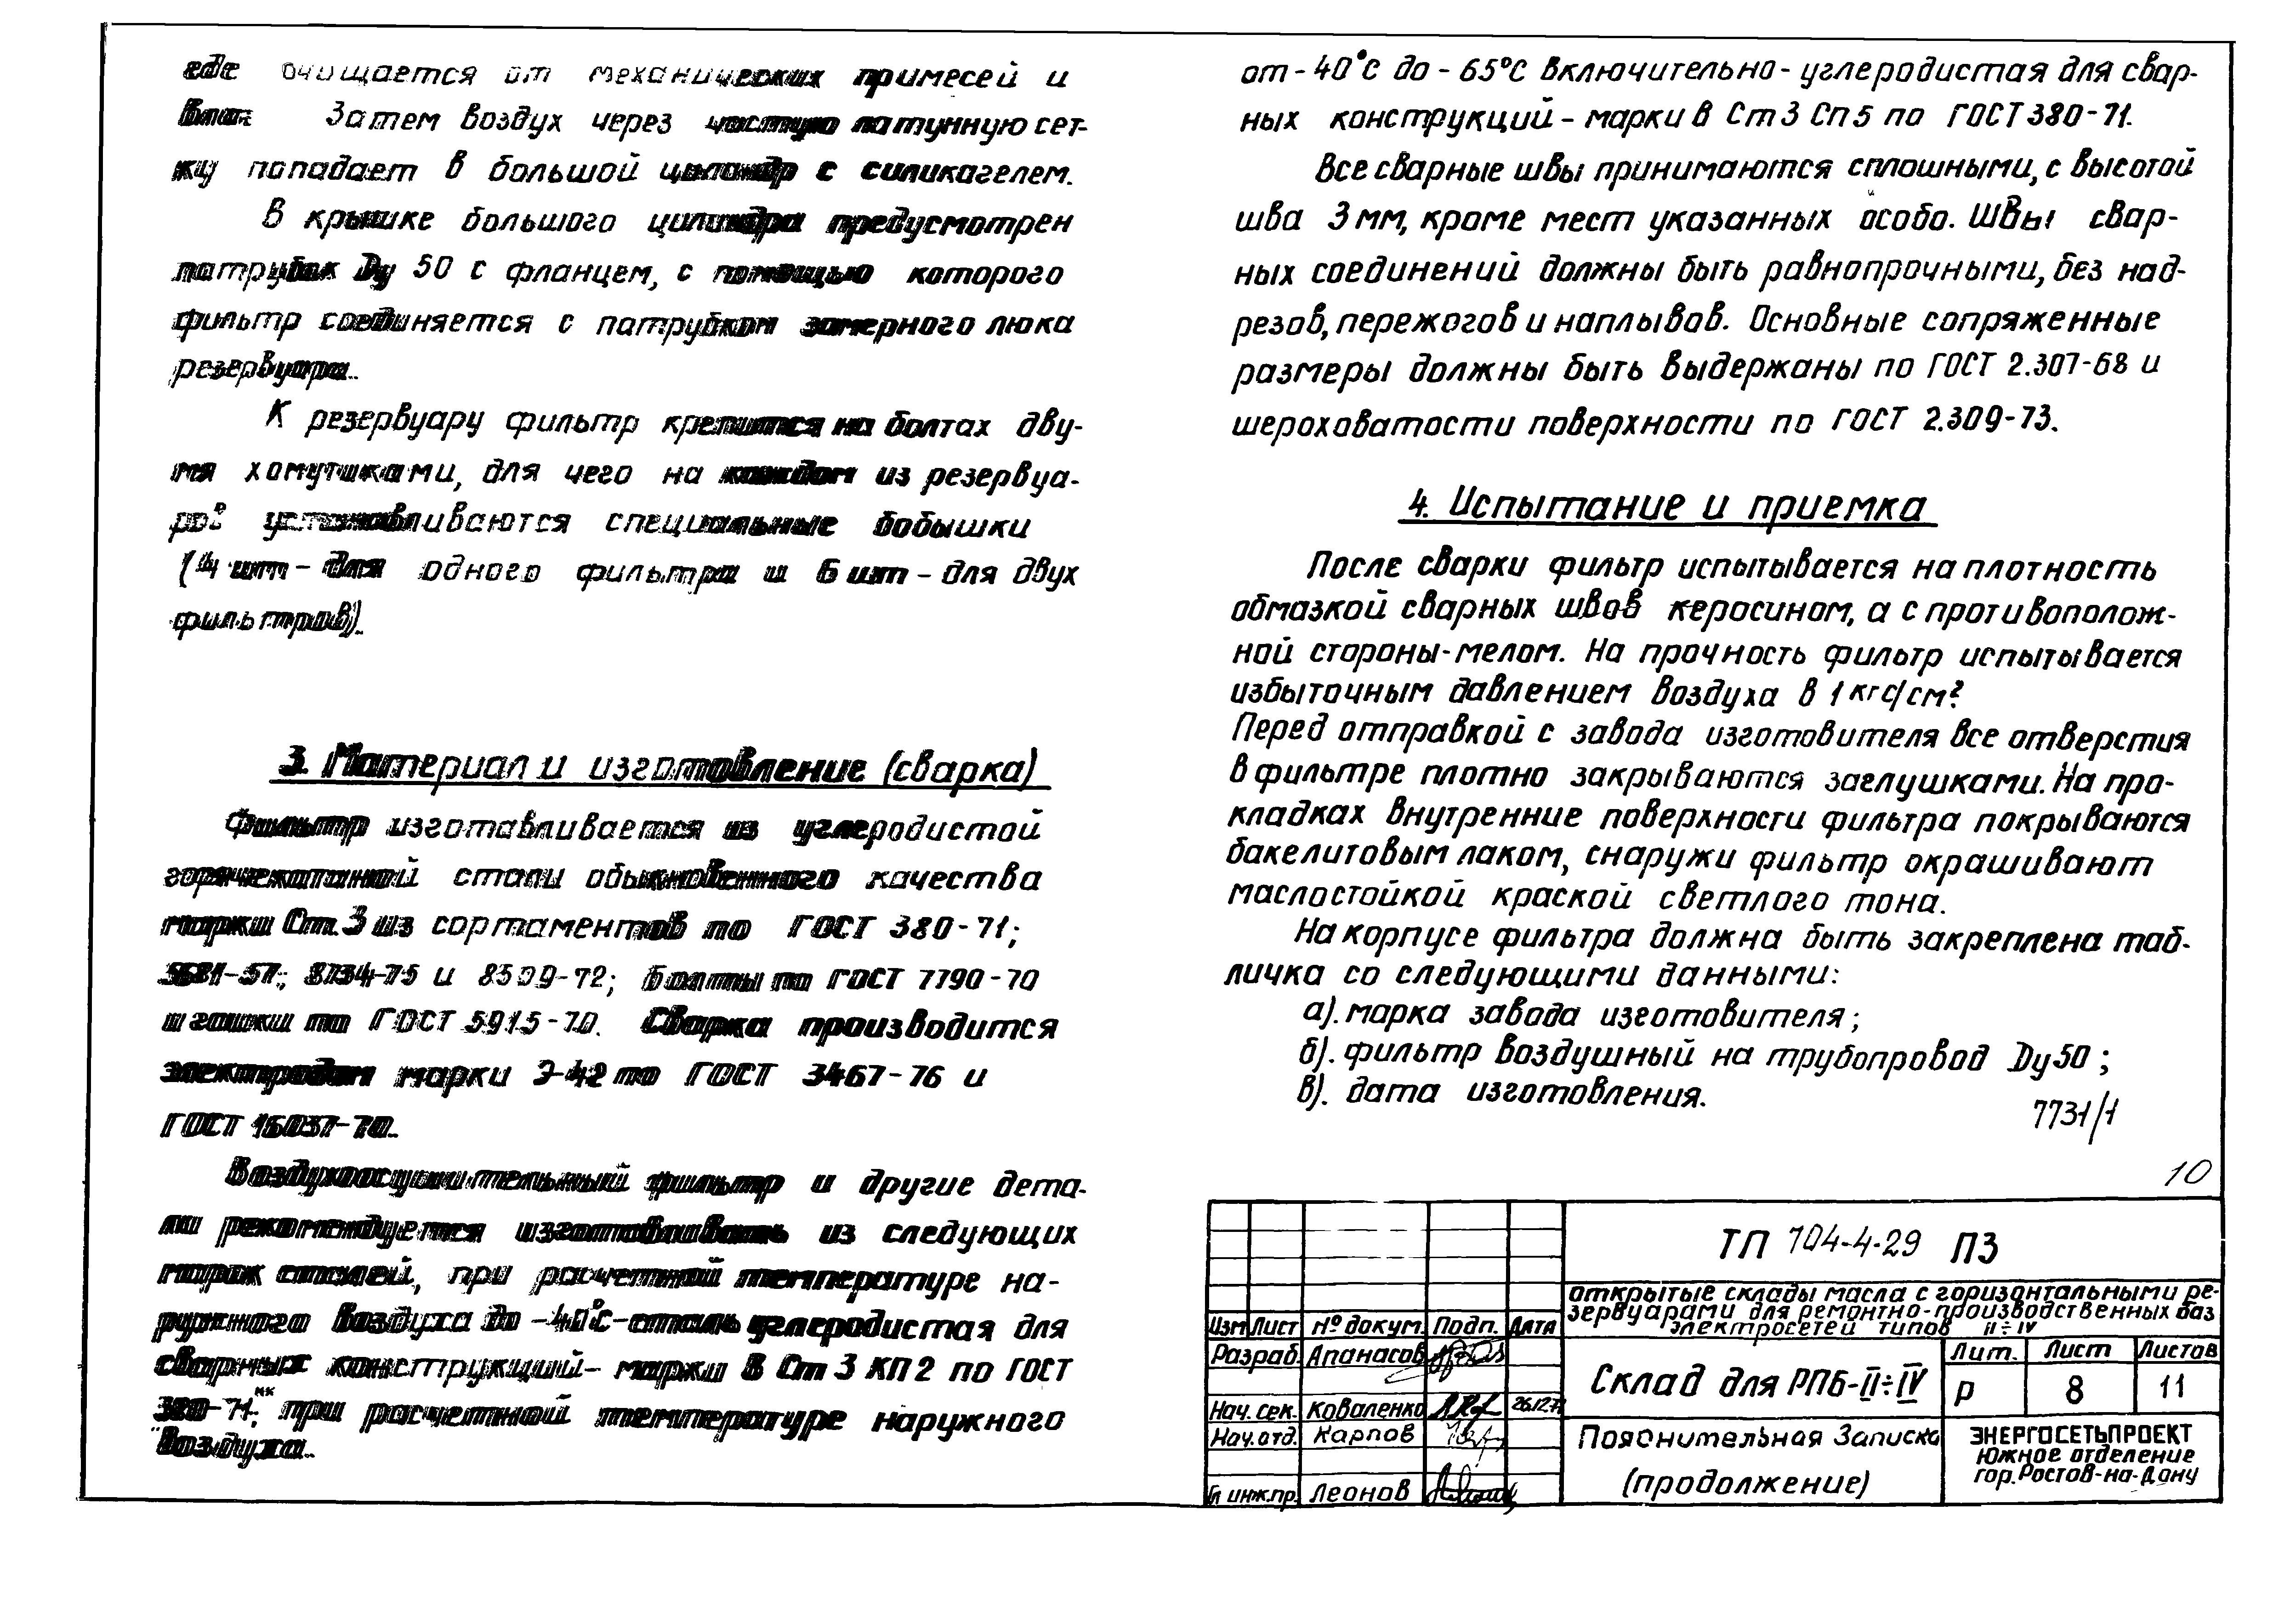 где очищается от механических примесей и
влаг Затем воздух через частую латунную сет-
ку попадает в большой цилиндр с силикагелем.
В крышке большого цилиндра предусмотрен
патрубок Ду 50 с фланцем, с помощью которого
фильтр соединяется с патрубком замерного люка
резервуара.
К резервуару фильтр крепится на болтах дву-
мя хомутиками, для чего на каждом из резервуа-
ров устанавливаются специальные бобышки
(4 шт - для одного фильтра и 6 шт - для двух
фильтров).
3. Материал и изготовление (сварка)
Фильтр изготавливается из углеродистой
горячекатанной стали обыкновенного качества
марки Ст. 3 из сортаментов по ГОСТ 380-71;
5681-57; 8734-75 и 8509-72; болты по ГОСТ 7790-70
и гайки по ГОСТ 5915-70. Сварка производится
электродом марки Э-42 по ГОСТ 3467-76 и
ГОСТ 15037-70.
Воздухоосушительный фильтр и другие дета-
ли рекомендуется изготавливать из следующих
марок сталей, при расчетной температуре на-
ружного воздуха до -40°с-сталь углеродистая для
сварных конструкций- марки В Ст 3 КП 2 по ГОСТ
380-71, при расчетной температуре наружного
воздуха.
от -40°с до -65°с включительно-углеродистая для свар-
ных конструкций - марки В Ст 3 Сп 5 по ГОСТ 380-71.
Все сварные швы принимаются сплошными, с высотой
шва 3 мм, кроме мест указанных особо. Швы свар-
ных соединений должны быть равнопрочными, без над-
резов, пережогов и наплывов. Основные сопряженные
размеры должны быть выдержаны по ГОСТ 2.307-68 и
шероховатости поверхности по ГОСТ 2.309-73.
4. Испытание и приемка
После сварки фильтр испытывается на плотность
обмазкой сварных швов керосином, а с противополож-
ной стороны-мелом. На прочность фильтр испытывается
избыточным давлением воздуха в 1 кгс/см².
Перед отправкой с завода изготовителя все отверстия
в фильтре плотно закрываются заглушками. На про-
кладках внутренние поверхности фильтра покрываются
бакелитовым лаком, снаружи фильтр окрашивают
маслостойкой краской светлого тона.
На корпусе фильтра должна быть закреплена таб-
личка со следующими данными:
а). марка завода изготовителя;
б). фильтр воздушный на трубопровод Ду 50;
в). дата изготовления.
7731/1
10
ТП 704-4-29 ПЗ
открытые склады масла с горизонтальными ре-
зервуарами для ремонтно-производственных баз
электросетей типов II÷IV
Изм Лист № докум. Подп. Дата
Разраб. Апанасов
Нач. сек. Коваленко
Нач. отд. Карпов
Гл инж.пр. Леонов
Склад для РПБ-II÷IV
Лит. Лист Листов
Р 8 11
Пояснительная Записка
(продолжение)
ЭНЕРГОСЕТЬПРОЕКТ
Южное отделение
гор. Ростов-на-Дону